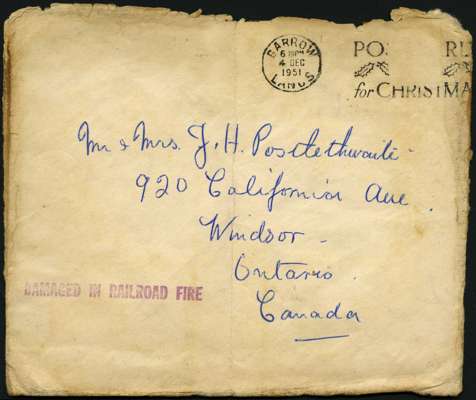 BARROW
6 PM
4 DEC
1951
LANCS
for CHRISTMA
Mr & Mrs. J. H. Postlethwaite
920 California Ave.
Windsor.
Ontario.
Canada
DAMAGED IN RAILROAD FIRE